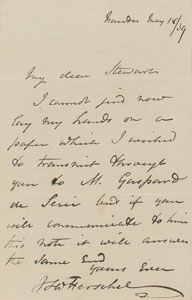 May 18/39
My dear Stewart
I cannot just now
lay my hands on a
paper which I wished
to transmit through
you to M. Gaspard
de and if you
will communicate to him
this note it will answer
the same End
Yours Ever
JFWHerschel